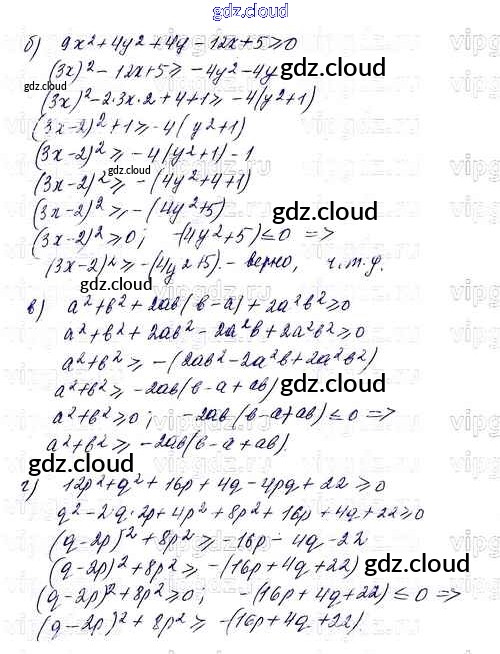 gdz.cloud
б) 9x² + 4y² + 4y - 12x + 5 ≥ 0
(3x)² - 12x + 5 ≥ -4y² - 4y
gdz.cloud
(3x)² - 2·3x·2 + 4 + 1 ≥ -4(y² + 1)
(3x-2)² + 1 ≥ -4(y² + 1)
(3x-2)² ≥ -4(y² + 1) - 1
(3x-2)² ≥ -(4y² + 4 + 1)
gdz.cloud
(3x-2)² ≥ -(4y² + 5)
gdz.cloud
(3x-2)² ≥ 0; -(4y² + 5) ≤ 0 =>
(3x-2)² ≥ -(4y² + 5). - верно, ч.т.д.
gdz.cloud
в) a² + b² + 2ab(b - a) + 2a²b² ≥ 0
a² + b² + 2ab² - 2a²b + 2a²b² ≥ 0
a² + b² ≥ -(2ab² - 2a²b + 2a²b²)
a² + b² ≥ -2ab(b - a + ab)
gdz.cloud
a² + b² ≥ 0; -2ab(b - a + ab) ≤ 0 =>
a² + b² ≥ -2ab(b - a + ab).
gdz.cloud
г) 12p² + q² + 16p + 4q - 4pq + 22 ≥ 0
q² - 2·q·2p + 4p² + 8p² + 16p + 4q + 22 ≥ 0
(q - 2p)² + 8p² ≥ -16p - 4q - 22
gdz.cloud
(q - 2p)² + 8p² ≥ -(16p + 4q + 22)
gdz.cloud
(q - 2p)² + 8p² ≥ 0; -(16p + 4q + 22) ≤ 0 =>
(q - 2p)² + 8p² ≥ -(16p + 4q + 22)
gdz.cloud